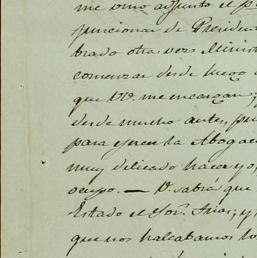 me vino adjunto el p
funcionar de Presiden
brado otra vez Minist
comenzar desde luego
que V. me encargan;
desde mucho antes, pu
para ejercer la Abogac
muy delicado hace yo,
ocupo. — V. sabrá que
Estado el Sor. Frias; y
que nos hallabamos to